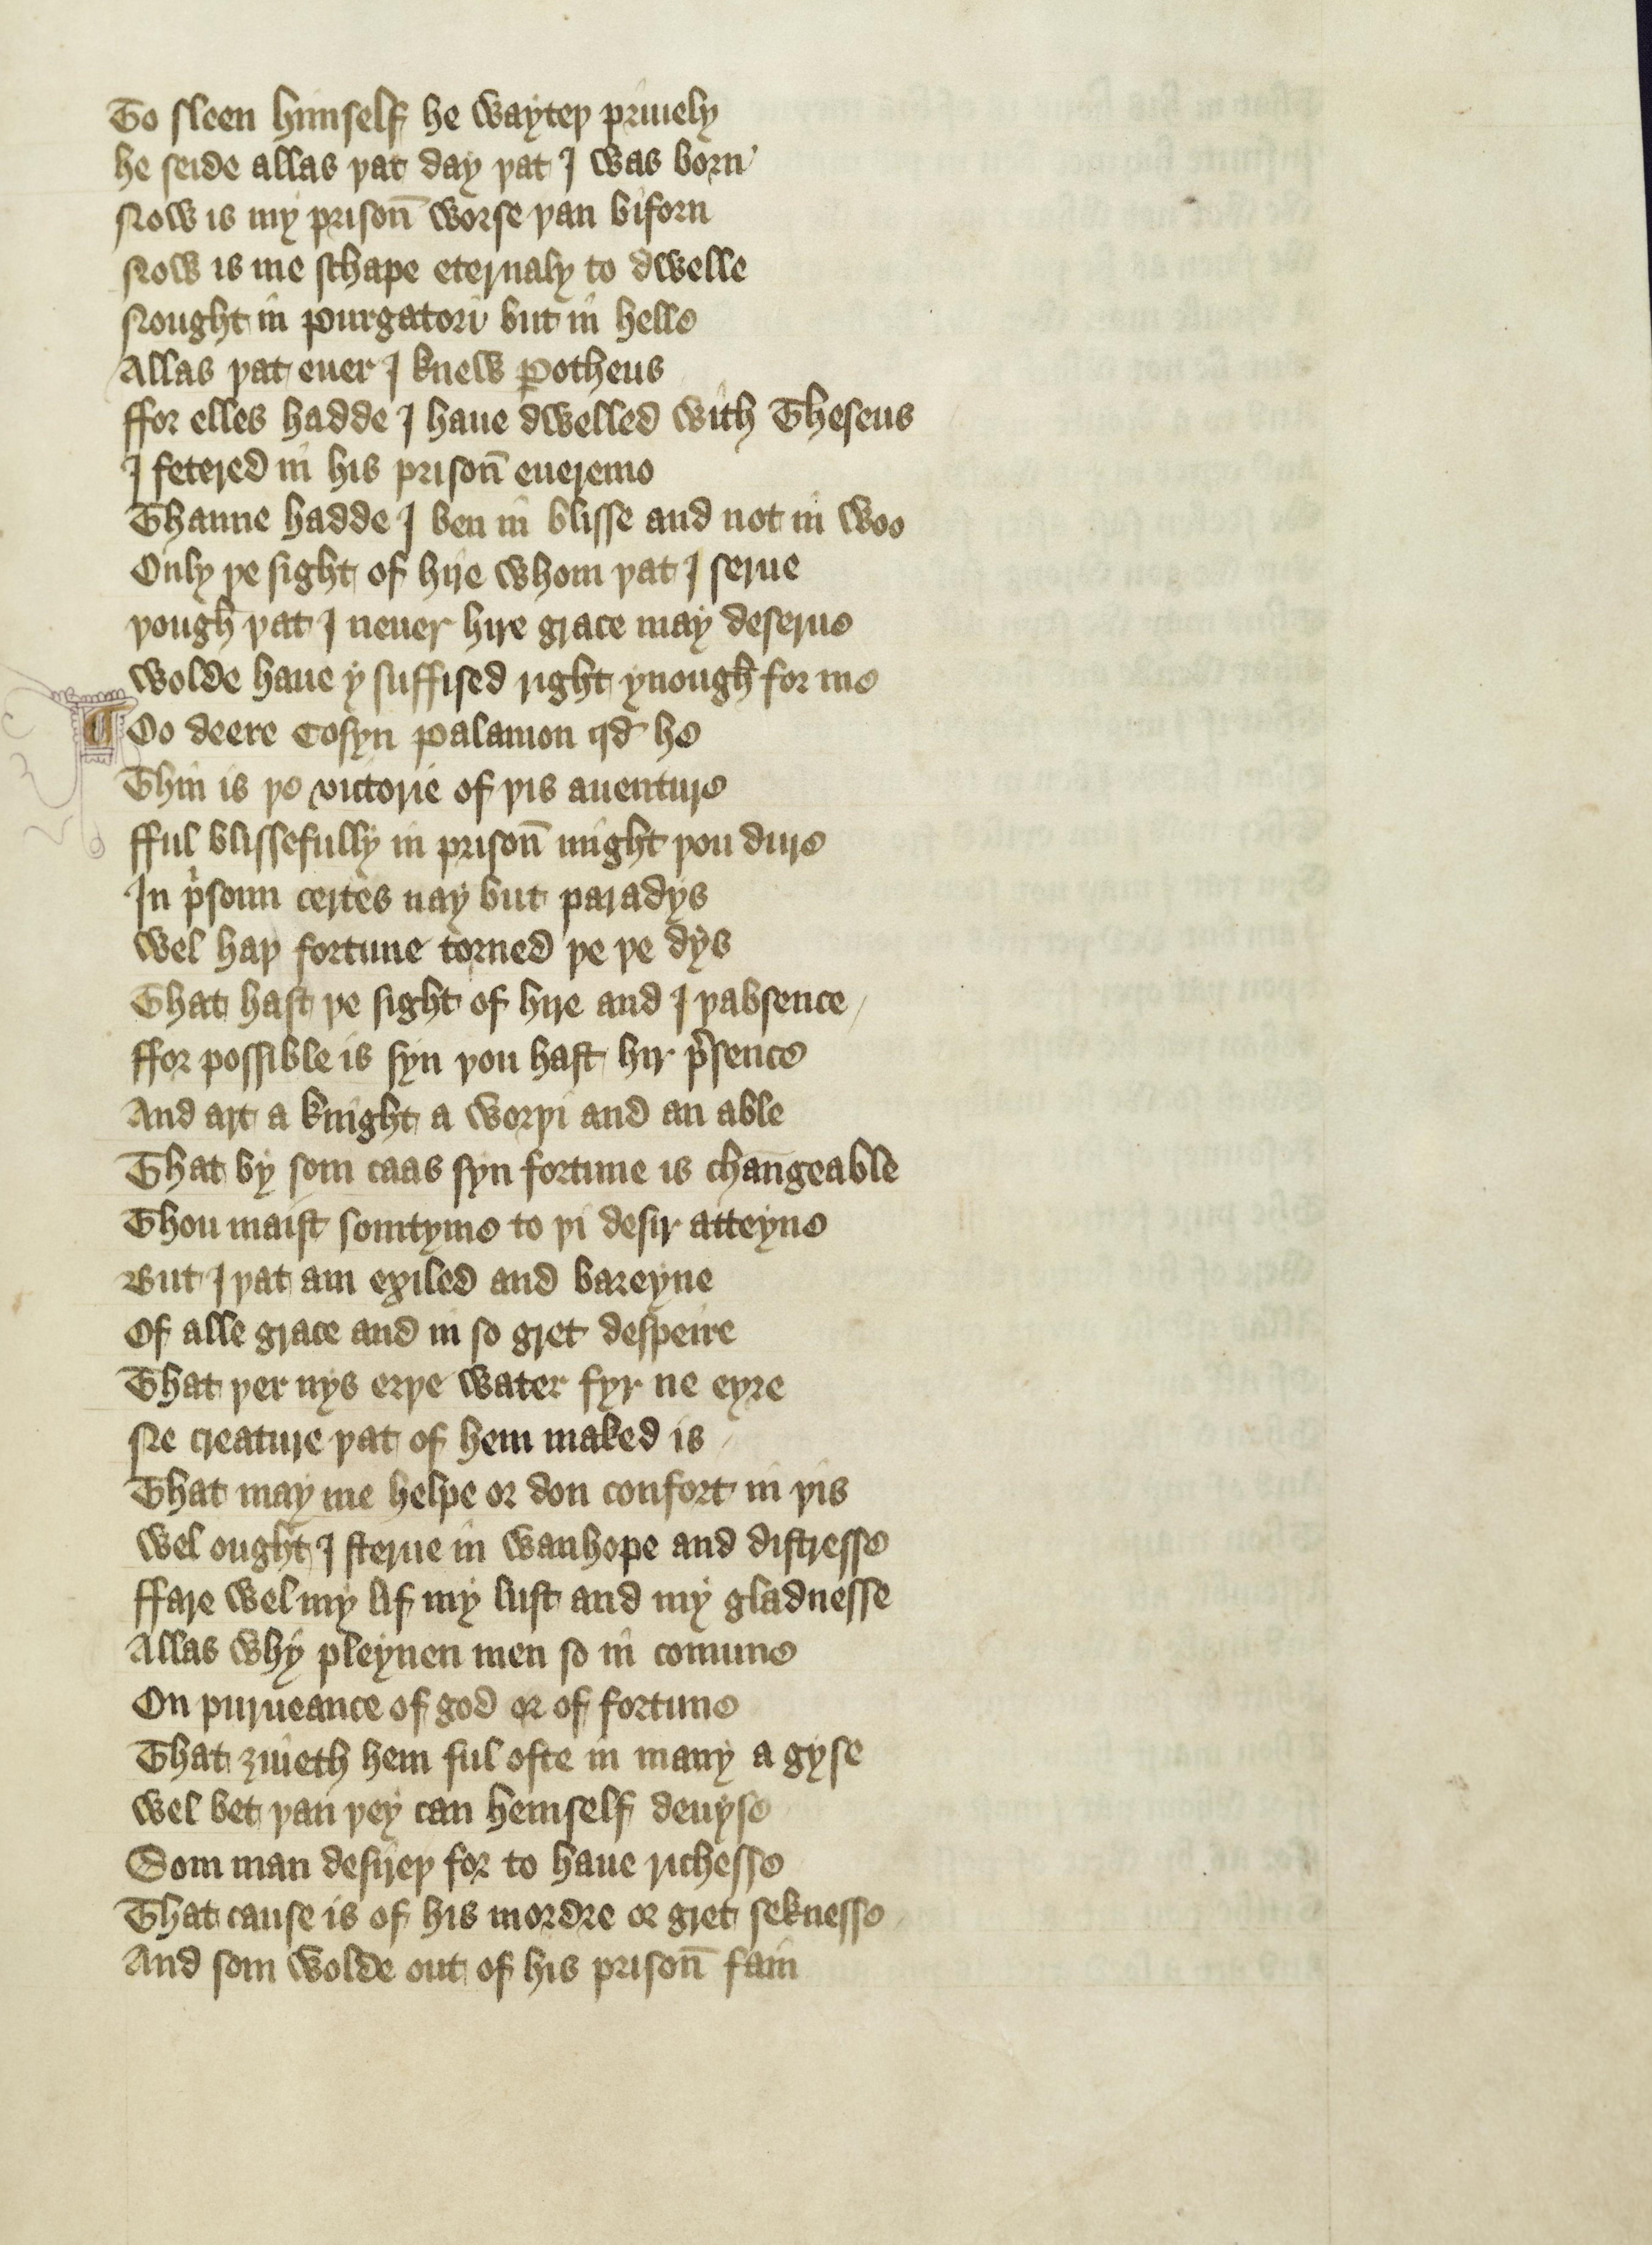 To sleen himself he wayteþ priuely
he seide allas þat day þat I was born
Now is my prison̄ worse þan biforn
Now is me schape eternaly to dwelle
Nought in purgatori but in helle
Allas þat euer I knew Potheus
ffor elles hadde I haue dwelled with Theseus
I fetered in his prison̄ eueremo
Thanne hadde I ben in blisse and not in woo
Only þe sight of hire whom þat I serue
þough þat I neuer hire grace may deserue
wolde haue y suffised right ynough for me
¶ Oo deere Cosyn Palamon qd he
Thin is þe victorie of þis auenture
fful blissefully in prison̄ might þou dure
In p͛soun certes nay but paradys
wel haþ fortune torned þe þe dys
That hast þe sight of hire and I þabsence
ffor possible is syn þou hast hir p͛sence
And art a knight a worþi and an able
That by som caas syn fortune is changeable
Thou maist somtyme to þi desir atteyne
But I þat am exiled and bareyne
Of alle grace and in so gret despeire
That þer nys erþe water fyr ne eyre
Ne creature þat of hem maked is
That may me helpe or don confort in þis
wel ought I sterue in wanhope and distresse
ffare wel my lif my lust and my gladnesse
Allas why pleynen men so in comune
On purueance of god or of fortune
That ȝiueth hem ful ofte in many a gyse
wel bet þan þey can hemself deuyse
Som man desireþ for to haue richesse
That cause is of his mordre or gret seknesse
And som wolde out of his prison̄ fain